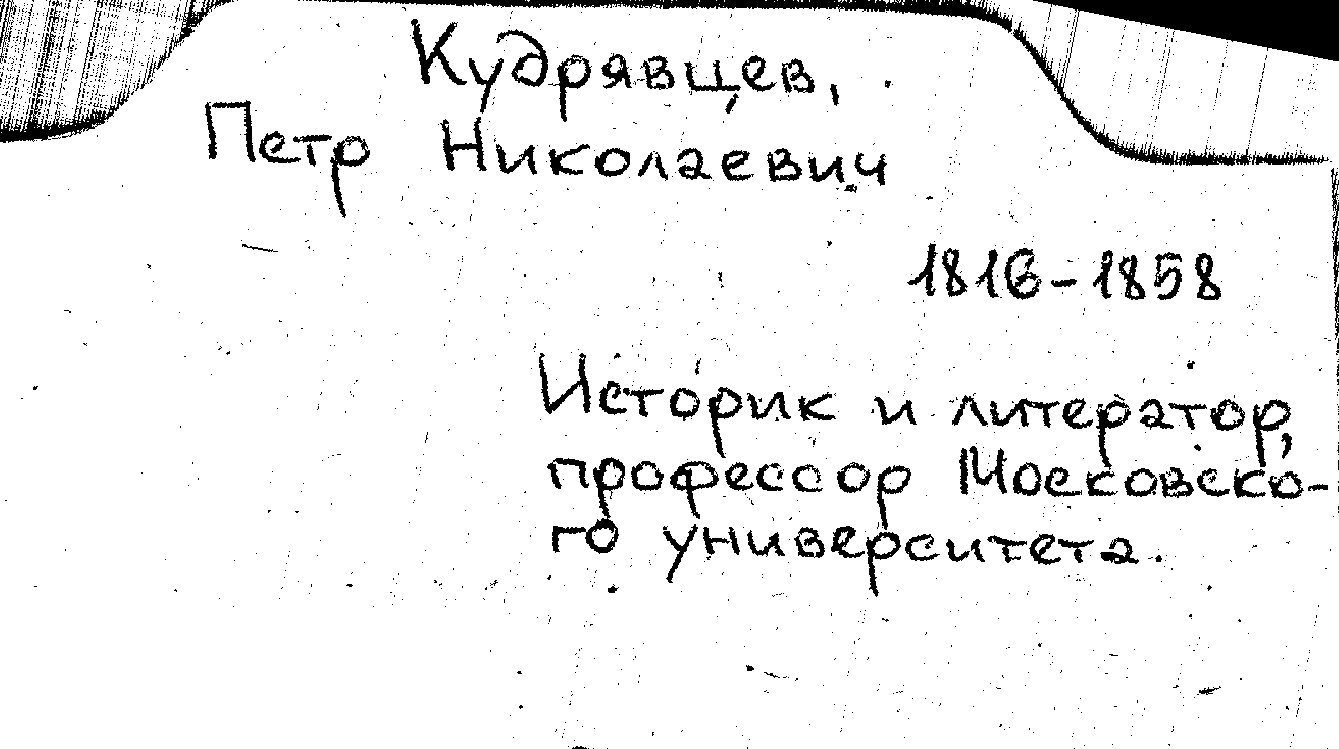 Кудрявцев,
Петр Николаевич
1816-1858
Историк и литератор,
профессор Московско-
го университета.